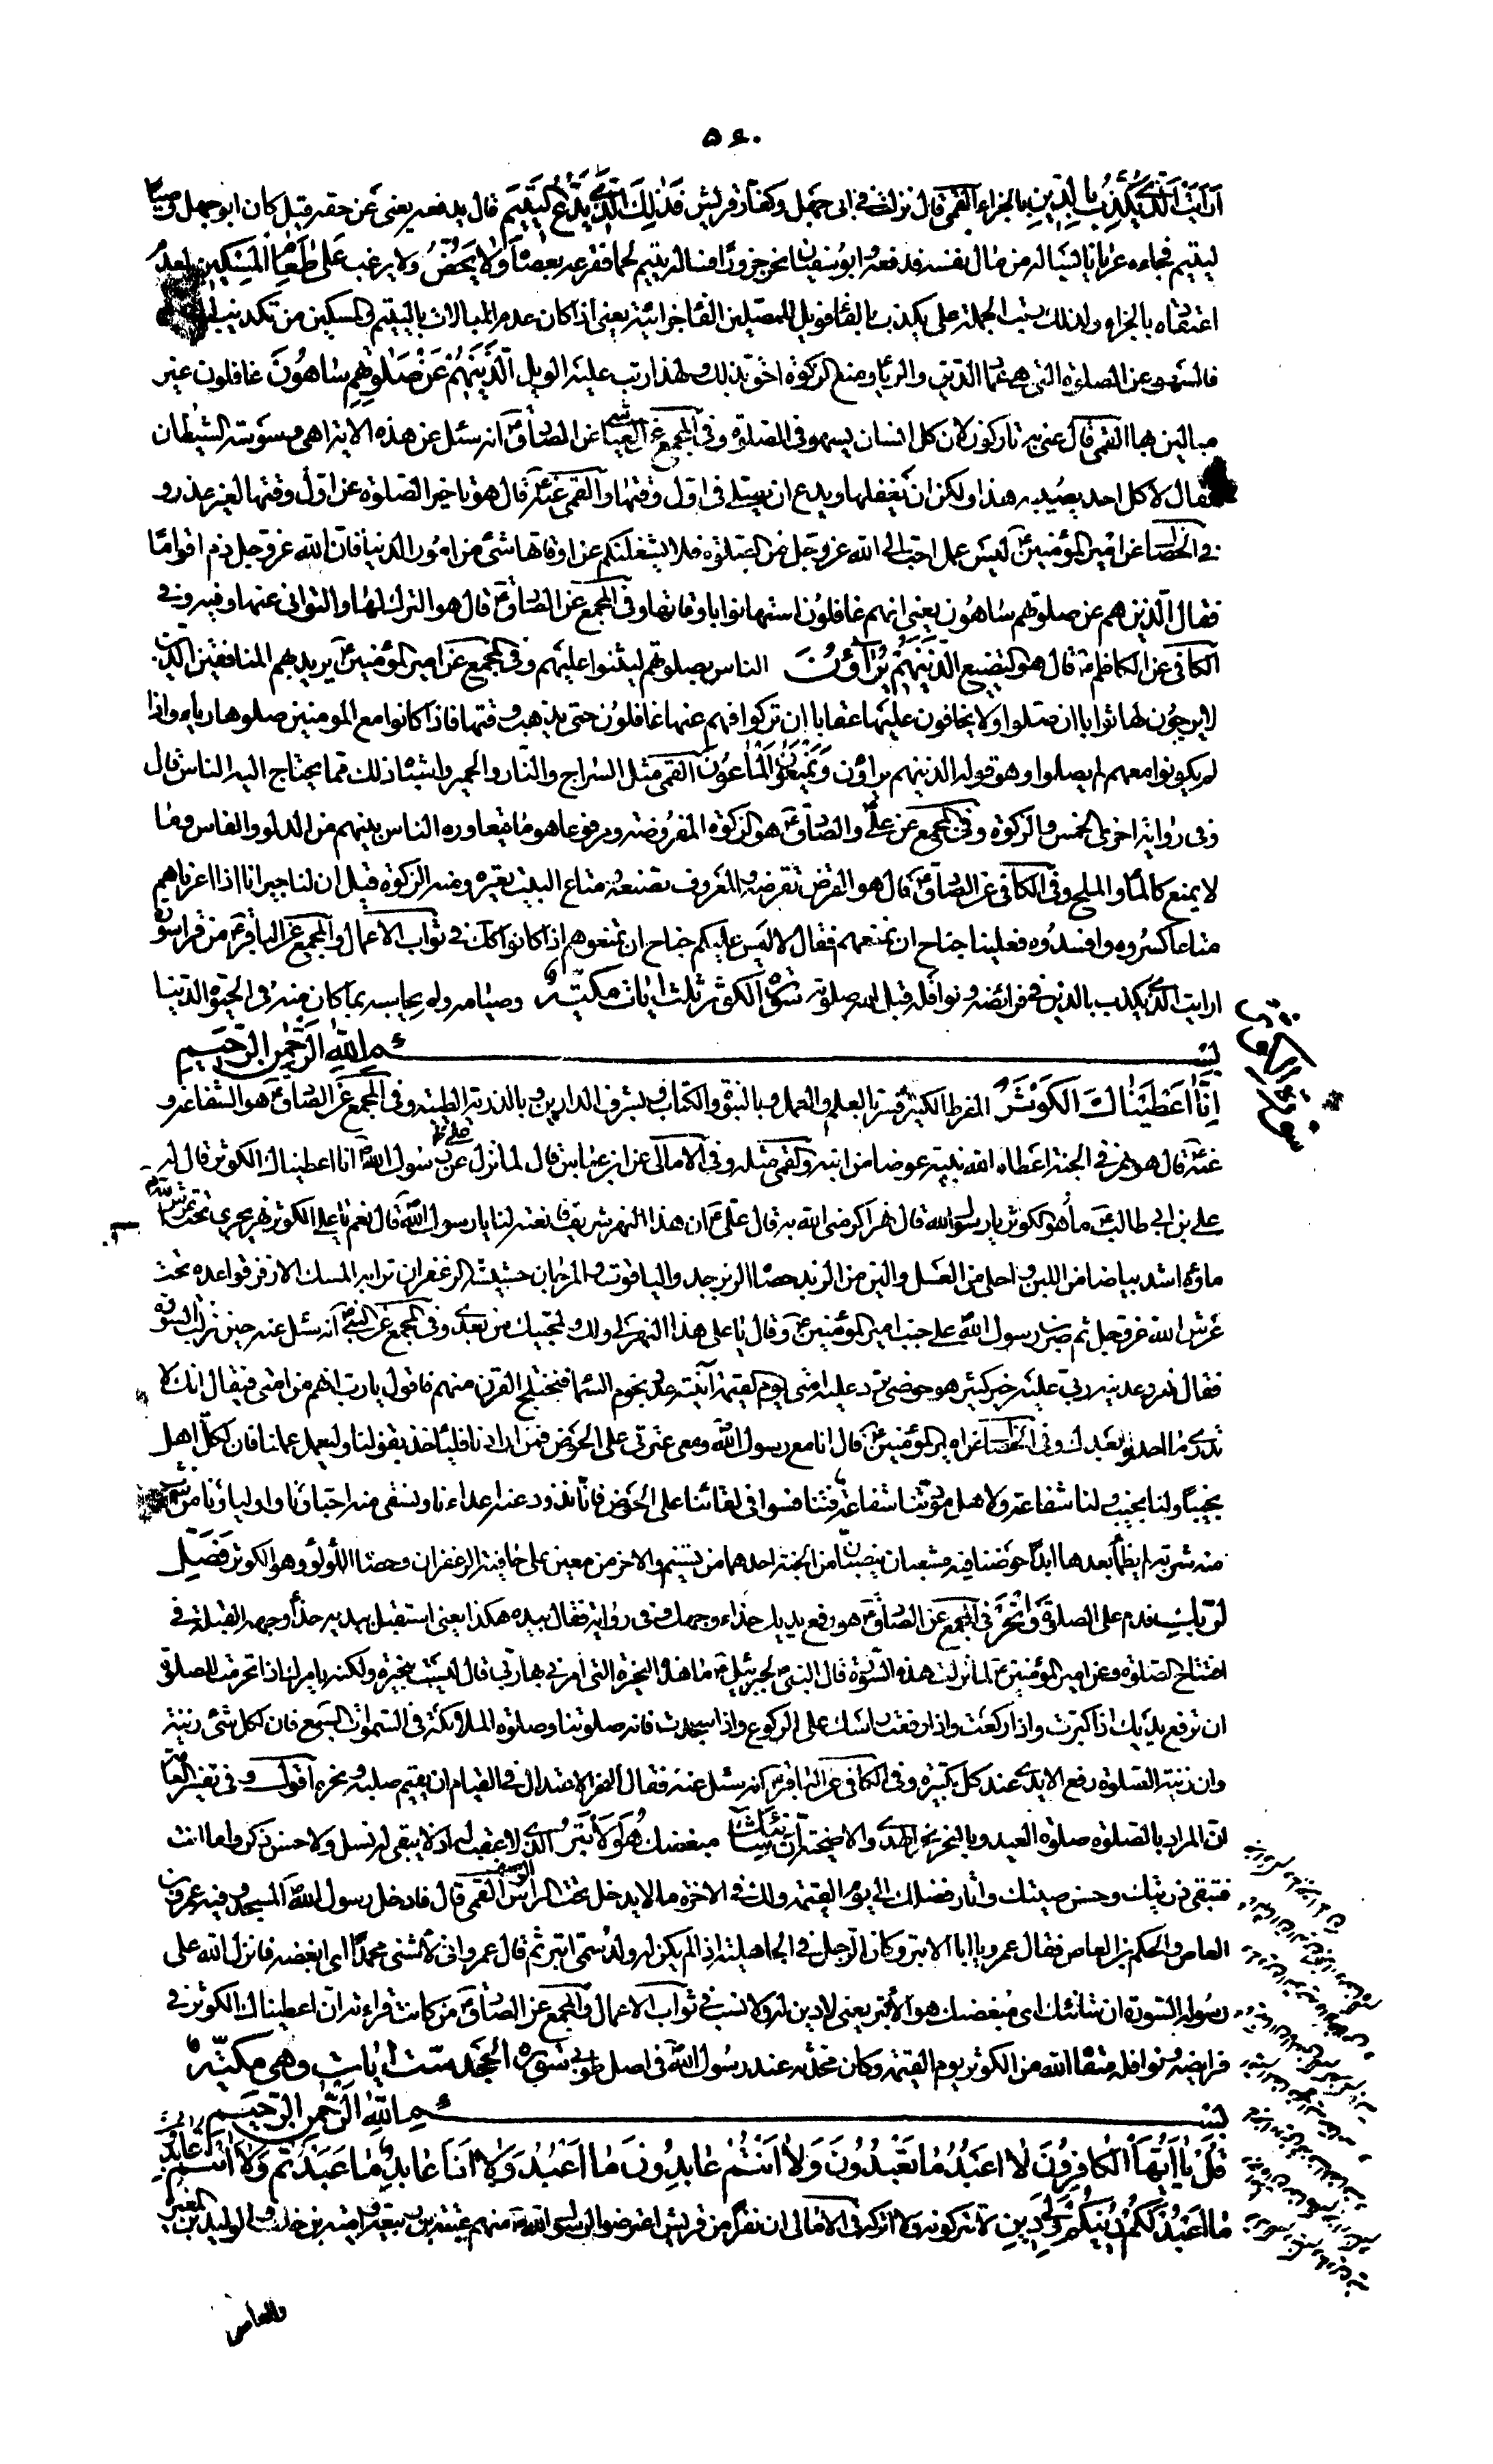 ٥٤٠
اَرَاَيْتَ الَّذي يُكَذِّبُ بِالدّينِ بالجزاء القمي قال نزلت في ابي جهل وكفار قريش فَذٰلِكَ الَّذي يَدُعُّ الْيَتيمَ قال يدفعه يعني عن حقه قيل كان ابو جهل وصيا
ليتيم فجاءه عريانا يسئاله من مال نفسه فدفعه وابو سفيان نحر جزورا فساله يتيم لحما فقرعه بعصاه وَلا يَحُضُّ ولا يرغب عَلىٰ طَعامِ الْمِسْكينِ لعدم
اعتقاده بالجزاء ولذلك رتب الجملة على يكذب بالفاء فويل للمصلين الفاء جزائية يعني اذا كان عدم المبالات باليتيم والمسكين من تكذيب
فالسهو عن الصلوة التي هي عماد الدين والرياء ومنع الزكوة احق بذلك ولهذا رتب عليه الويل اَلَّذينَ هُمْ عَنْ صَلٰوتِهِمْ سٰاهُونَ غافلون غير
مبالين بها القمي قال عنى به تاركون لان كل انسان يسهو في الصلوة وفي المجمع عن العياشي عن الصادق انه سئل عن هذه الاية اهي وسوسة الشيطان
فقال لا كل احد يصيبه هذا ولكن ان يغفلها ويدع ان يصلي في اول وقتها والقمي عنه قال هو تاخير الصلوة عن اول وقتها لغير عذر و
في الخصال عن امير المؤمنين ليس عمل احب الى الله عز وجل من الصلوة فلا يشغلنكم عن اوقاتها شيء من امور الدنيا فان الله عز وجل ذم اقواما
فقال الذين هم عن صلوتهم ساهون يعني انهم غافلون استهانوا باوقاتها وفي المجمع عن الصادق قال هو الترك لها والتواني عنها وفيه وفي
الكافي عن الكاظم قال هو التضييع اَلَّذينَ هُمْ يُراؤُنَ الناس بصلوتهم ليثنوا عليهم وفي المجمع عن امير المؤمنين يريد بهم المنافقين الذين
لا يرجون لها ثوابا ان صلوا ولا يخافون عليها عقابا ان تركوا فهم عنها غافلون حتى يذهب وقتها فاذا كانوا مع المومنين صلوها رياء واذا
لم يكونوا معهم لم يصلوا وهو قوله الذين هم يراؤن وَيَمْنَعُونَ الْمٰاعُونَ القمي مثل السراج والنار والخمير واشباه ذلك مما يحتاج اليه الناس قال
وفي رواية اخرى الخمس والزكوة وفي المجمع عن علي والصادق هو الزكوة المفروضة ومرفوعا هو ما يتعاوره الناس بينهم من الدلو والفاس وما
لا يمنع كالماء والملح وفي الكافي عن الصادق قال هو القرض تقرضه والمعروف تصنعه ومتاع البيت تعيره ومنه الزكوة قيل ان لنا جيرانا اذا اعرناهم
متاعا كسروه وافسدوه فعلينا جناح ان نمنعهم فقال لا ليس عليكم جناح ان تمنعوهم اذا كانوا كذلك في ثواب الاعمال والمجمع عن الباقر من قرا سورة
ارايت الذي يكذب بالدين في فرائضه ونوافله قبل الله صلوته سورة الكوثر ثلث ايات مكية وصيامه ولم يحاسبه بما كان منه في الحيوة الدنيا
سورة الكوثر
بِسْمِ اللهِ الرَّحْمٰنِ الرَّحيمِ
اِنّٰا اَعْطَيْنٰاكَ الْكَوْثَرَ المفرط الكثير فسر بالعلم والعمل وبالنبوة والكتاب وبشرف الدارين وبالذرية الطيبة وفي المجمع عن الصادق هو الشفاعة و
عنه قال هو نهر في الجنة اعطاه الله نبيه عوضا من ابنه والقمي مثله وفي الامالي عن ابن عباس قال لما نزل على رسول الله انا اعطيناك الكوثر قال له
علي بن ابي طالب ما هو الكوثر يا رسول الله قال نهر اكرمني الله به قال علي ان هذا النهر شريف فانعته لنا يا رسول الله قال نعم يا علي الكوثر نهر يجري تحت عرش الله
ماؤه اشد بياضا من اللبن واحلى من العسل والين من الزبد حصاه الزبرجد والياقوت والمرجان حشيشه الزعفران ترابه المسك الاذفر قواعده تحت
عرش الله عز وجل ثم ضرب رسول الله على جنب امير المؤمنين وقال يا علي هذا النهر لي ولك ولمحبيك من بعدي وفي المجمع عن النبي انه سئل عنه حين نزلت السورة
فقال نهر وعدنيه ربي عليه خير كثير هو حوضي ترد عليه امتي يوم القيمة انيته عدد نجوم السماء فيختلج القرن منهم فاقول يا رب انهم من امتي فيقال انك لا
تدري ما احدثوا بعدك وفي الخصال عن امير المؤمنين قال انا مع رسول الله ومعي عترتي على الحوض فمن ارادنا فلياخذ بقولنا وليعمل عملنا فان لكل اهل
نجيبا ولنا نجيب ولنا شفاعة ولاهل مودتنا شفاعة فتنافسوا في لقائنا على الحوض فانا نذود عنه اعداءنا ونسقي منه احباؤنا واولياؤنا من شرب
منه شربة لم يظمأ بعدها ابدا حوضنا فيه مثعبان ينصبان من الجنة احدهما من تسنيم والاخر من معين على حافتيه الزعفران وحصاه اللؤلؤ وهو الكوثر فَصَلِّ
لِرَبِّكَ فدم على الصلوة وَانْحَرْ في المجمع عن الصادق هو رفع يديك حذاء وجهك وفي رواية فقال بيده هكذا يعني استقبل بيديه حذاء وجهه القبلة في
افتتاح الصلوة وعن امير المؤمنين لما نزلت هذه السورة قال النبي لجبرئيل ما هذه النحيرة التي امرني بها ربي قال ليست بنحيرة ولكنه يامرك اذا تحرمت للصلوة
ان ترفع يديك اذا كبرت واذا ركعت واذا رفعت راسك على الركوع واذا سجدت فانه صلوتنا وصلوة الملائكة في السموات السبع فان لكل شيء زينة
وان زينة الصلوة رفع الايدي عند كل تكبيرة وفي الكافي عن الباقر انه سئل عنه فقال النحر الاعتدال في القيام ان يقيم صلبه ونحره اقول وفي تفسير العامة
ان المراد بالصلوة صلوة العيد وبالنحر نحر الهدي والاضحية اِنَّ شٰانِئَكَ مبغضك هُوَ الْاَبْتَرُ الذي لا عقب له اذ لا يبقى له نسل ولا حسن ذكر واما انت
فتبقى ذريتك وحسن صيتك واثار فضلك الى يوم القيمة ولك في الاخرة ما لا يدخل تحت الوصف القمي قال دخل رسول الله المسجد وفيه عمرو بن
العاص والحكم بن العاص فقال عمرو يا ابا الابتر وكان الرجل في الجاهلية اذا لم يكن له ولد سمي ابتر ثم قال عمرو اني لاشنى محمدا اي ابغضه فانزل الله على
رسوله السورة ان شانئك اي مبغضك هو الابتر يعني لا دين له ولا نسب في ثواب الاعمال والمجمع عن الصادق من كانت قراءته انا اعطيناك الكوثر في
فرايضه ونوافله سقاه الله من الكوثر يوم القيمة وكان محدثه عند رسول الله في اصل طوبى سورة الجحد ست ايات وهي مكية
بِسْمِ اللهِ الرَّحْمٰنِ الرَّحيمِ
قُلْ يٰا اَيُّهَا الْكٰافِرُونَ لا اَعْبُدُ مٰا تَعْبُدُونَ وَلا اَنْتُمْ عٰابِدُونَ مٰا اَعْبُدُ وَلا اَنَا عٰابِدٌ مٰا عَبَدْتُمْ وَلا اَنْتُمْ عٰابِدُونَ
مٰا اَعْبُدُ لَكُمْ دينُكُمْ وَلِيَ دينِ لا تتركونه ولا اتركه في الامالي ان نفرا من قريش اعترضوا لرسول الله منهم عتبة بن ربيعة وامية بن خلف والوليد بن المغيرة
والعاص